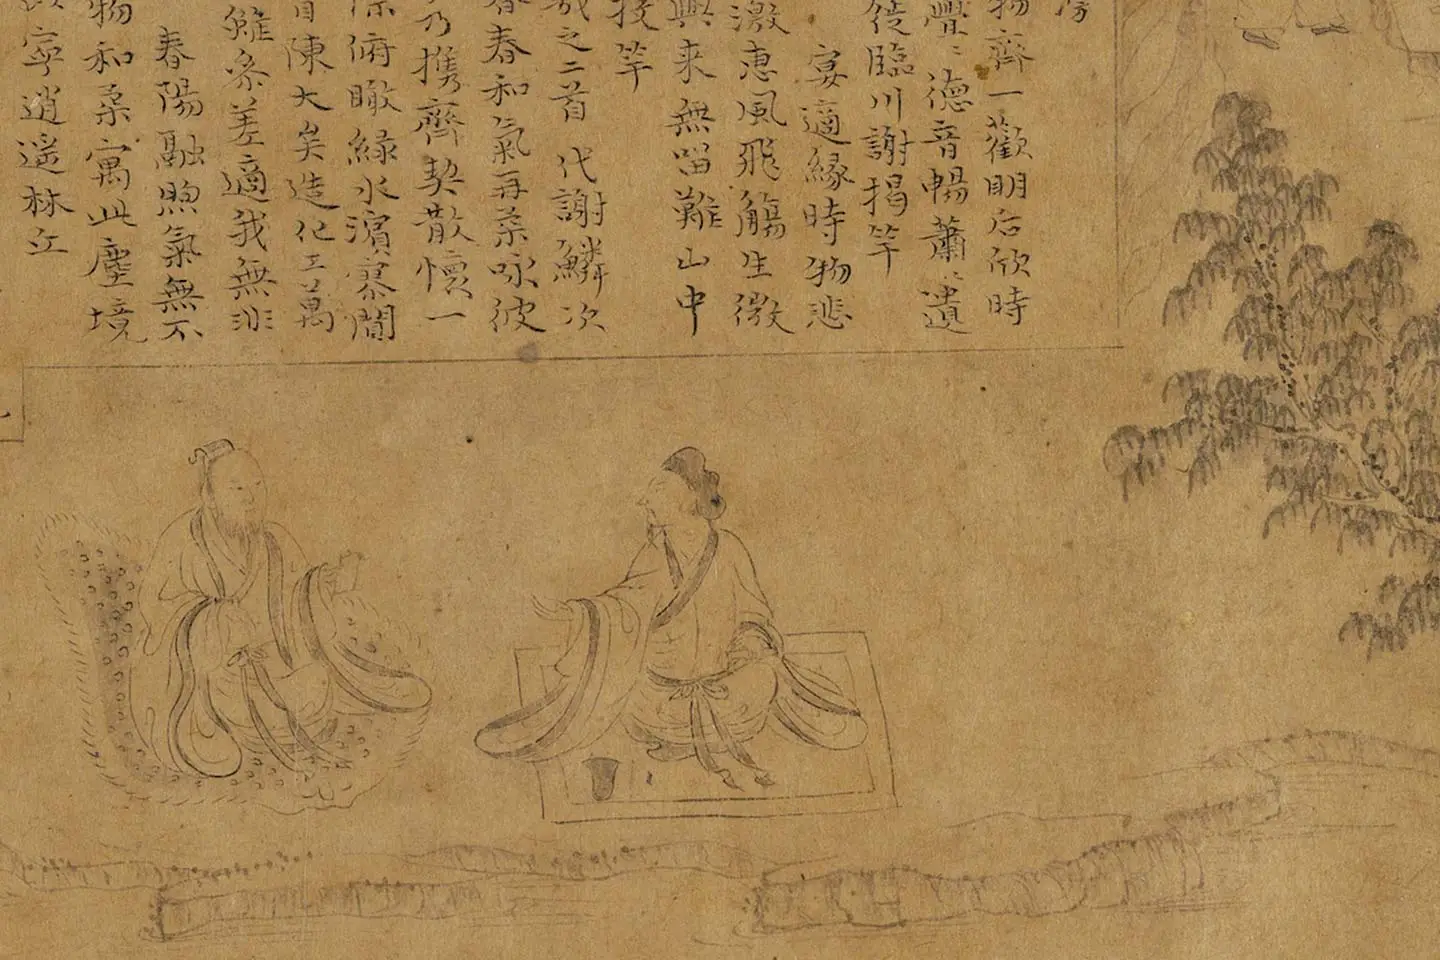 物齊一歡明后欣時
亹〻德音暢蕭〻遺
屣臨川謝揭竿
宴適緣時物悲
激惠風飛觴生微
興来無喈難山中
投竿
哉之二首 代謝鱗次
春春和氣再柔咏彼
乃携齊契散懷一
際俯瞰緑水濱寥闃
目陳大矣造化工萬
雖參差適我無非
春陽融煦氣無不
物和柔寓此塵境
寧逍遥林丘